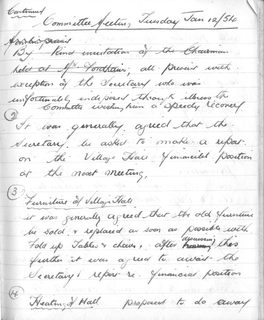 Continued
Committee Meeting, Tuesday Jan 12/54
By kind invitation of the Chairman
held at Mr Fordhams, all present with
exception of the Secretary who was
unfortunately indisposed through illness the
Committee wishing him a speedy recovery
2
It was generally agreed that the
Secretary, be asked to make a report
on the Village Hall financial position
at the next meeting.
3
Furniture of Village Hall
it was generally agreed that the old furniture
be sold & replaced as soon as possible with
Fold up Tables & chairs, after discussing this
further it was agreed to await the
Secretary's report re. financial position
4
Heating of Hall proposed to do away